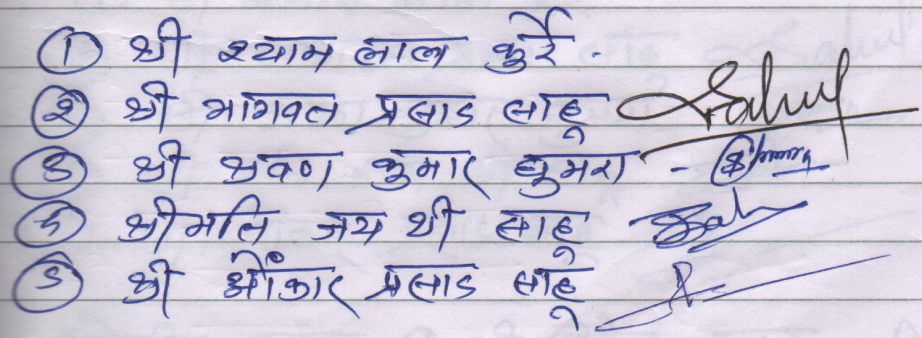 ① श्री श्याम लाल कुर्रे -
② श्री भागवत प्रसाद साहू Sahu
③ श्री श्रवण कुमार घुमरा -
④ श्रीमति जय श्री साहू Sahu
⑤ श्री ओंकार प्रसाद साहू